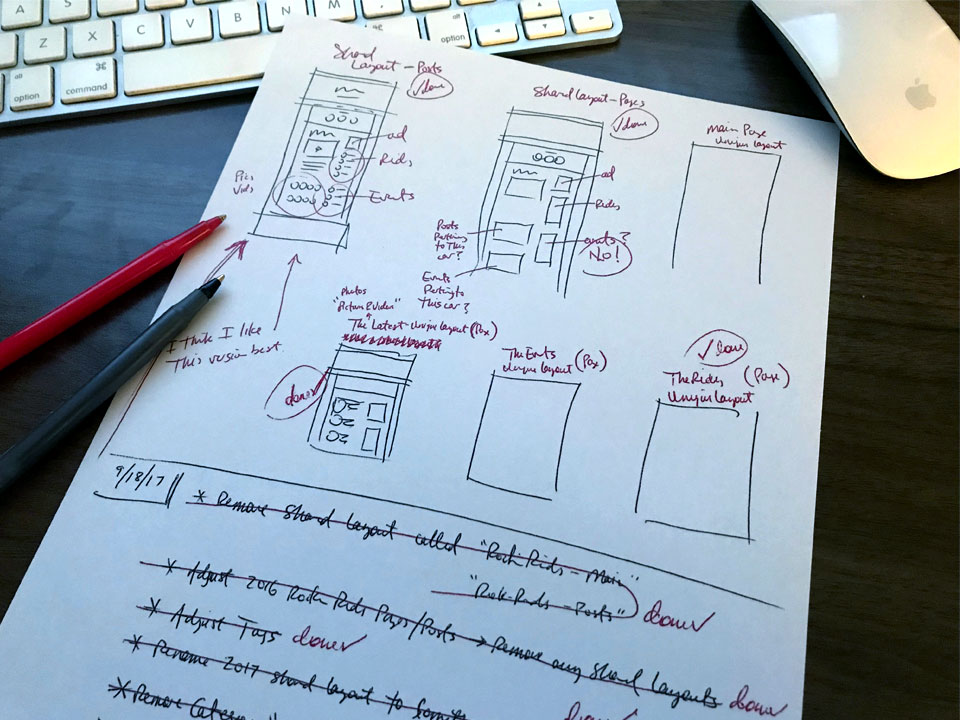 A
S
D
F
G
H
J
K
L
Z
X
C
V
B
N
M
alt
option
⌘
command
⌘
alt
option
Shard
Layout - Posts
✓done
ad
Rides
Events
Pics
Vids
I think I like
This version best
Shard Layout - Pages
✓done
ad
Rides
events?
NO!
Posts
Pertaining
to This
car?
Events
Pertaining to
This car?
Main Page
Unique layout
Photos
"Picture & Video"
The Latest - Unique layout (Page)
done
The Events (Page)
Unique layout
✓done
The Rides (Page)
Unique Layout
9/18/17
* Remove Shard Layout called "Rock Rides - Main"
"Rock-Rides - Posts" done✓
* Adjust 2016 Rockin Rides Pages/Posts → Remove any Shard Layouts done✓
* Adjust Tags done✓
* Rename 2017 shard layout to
* Remove